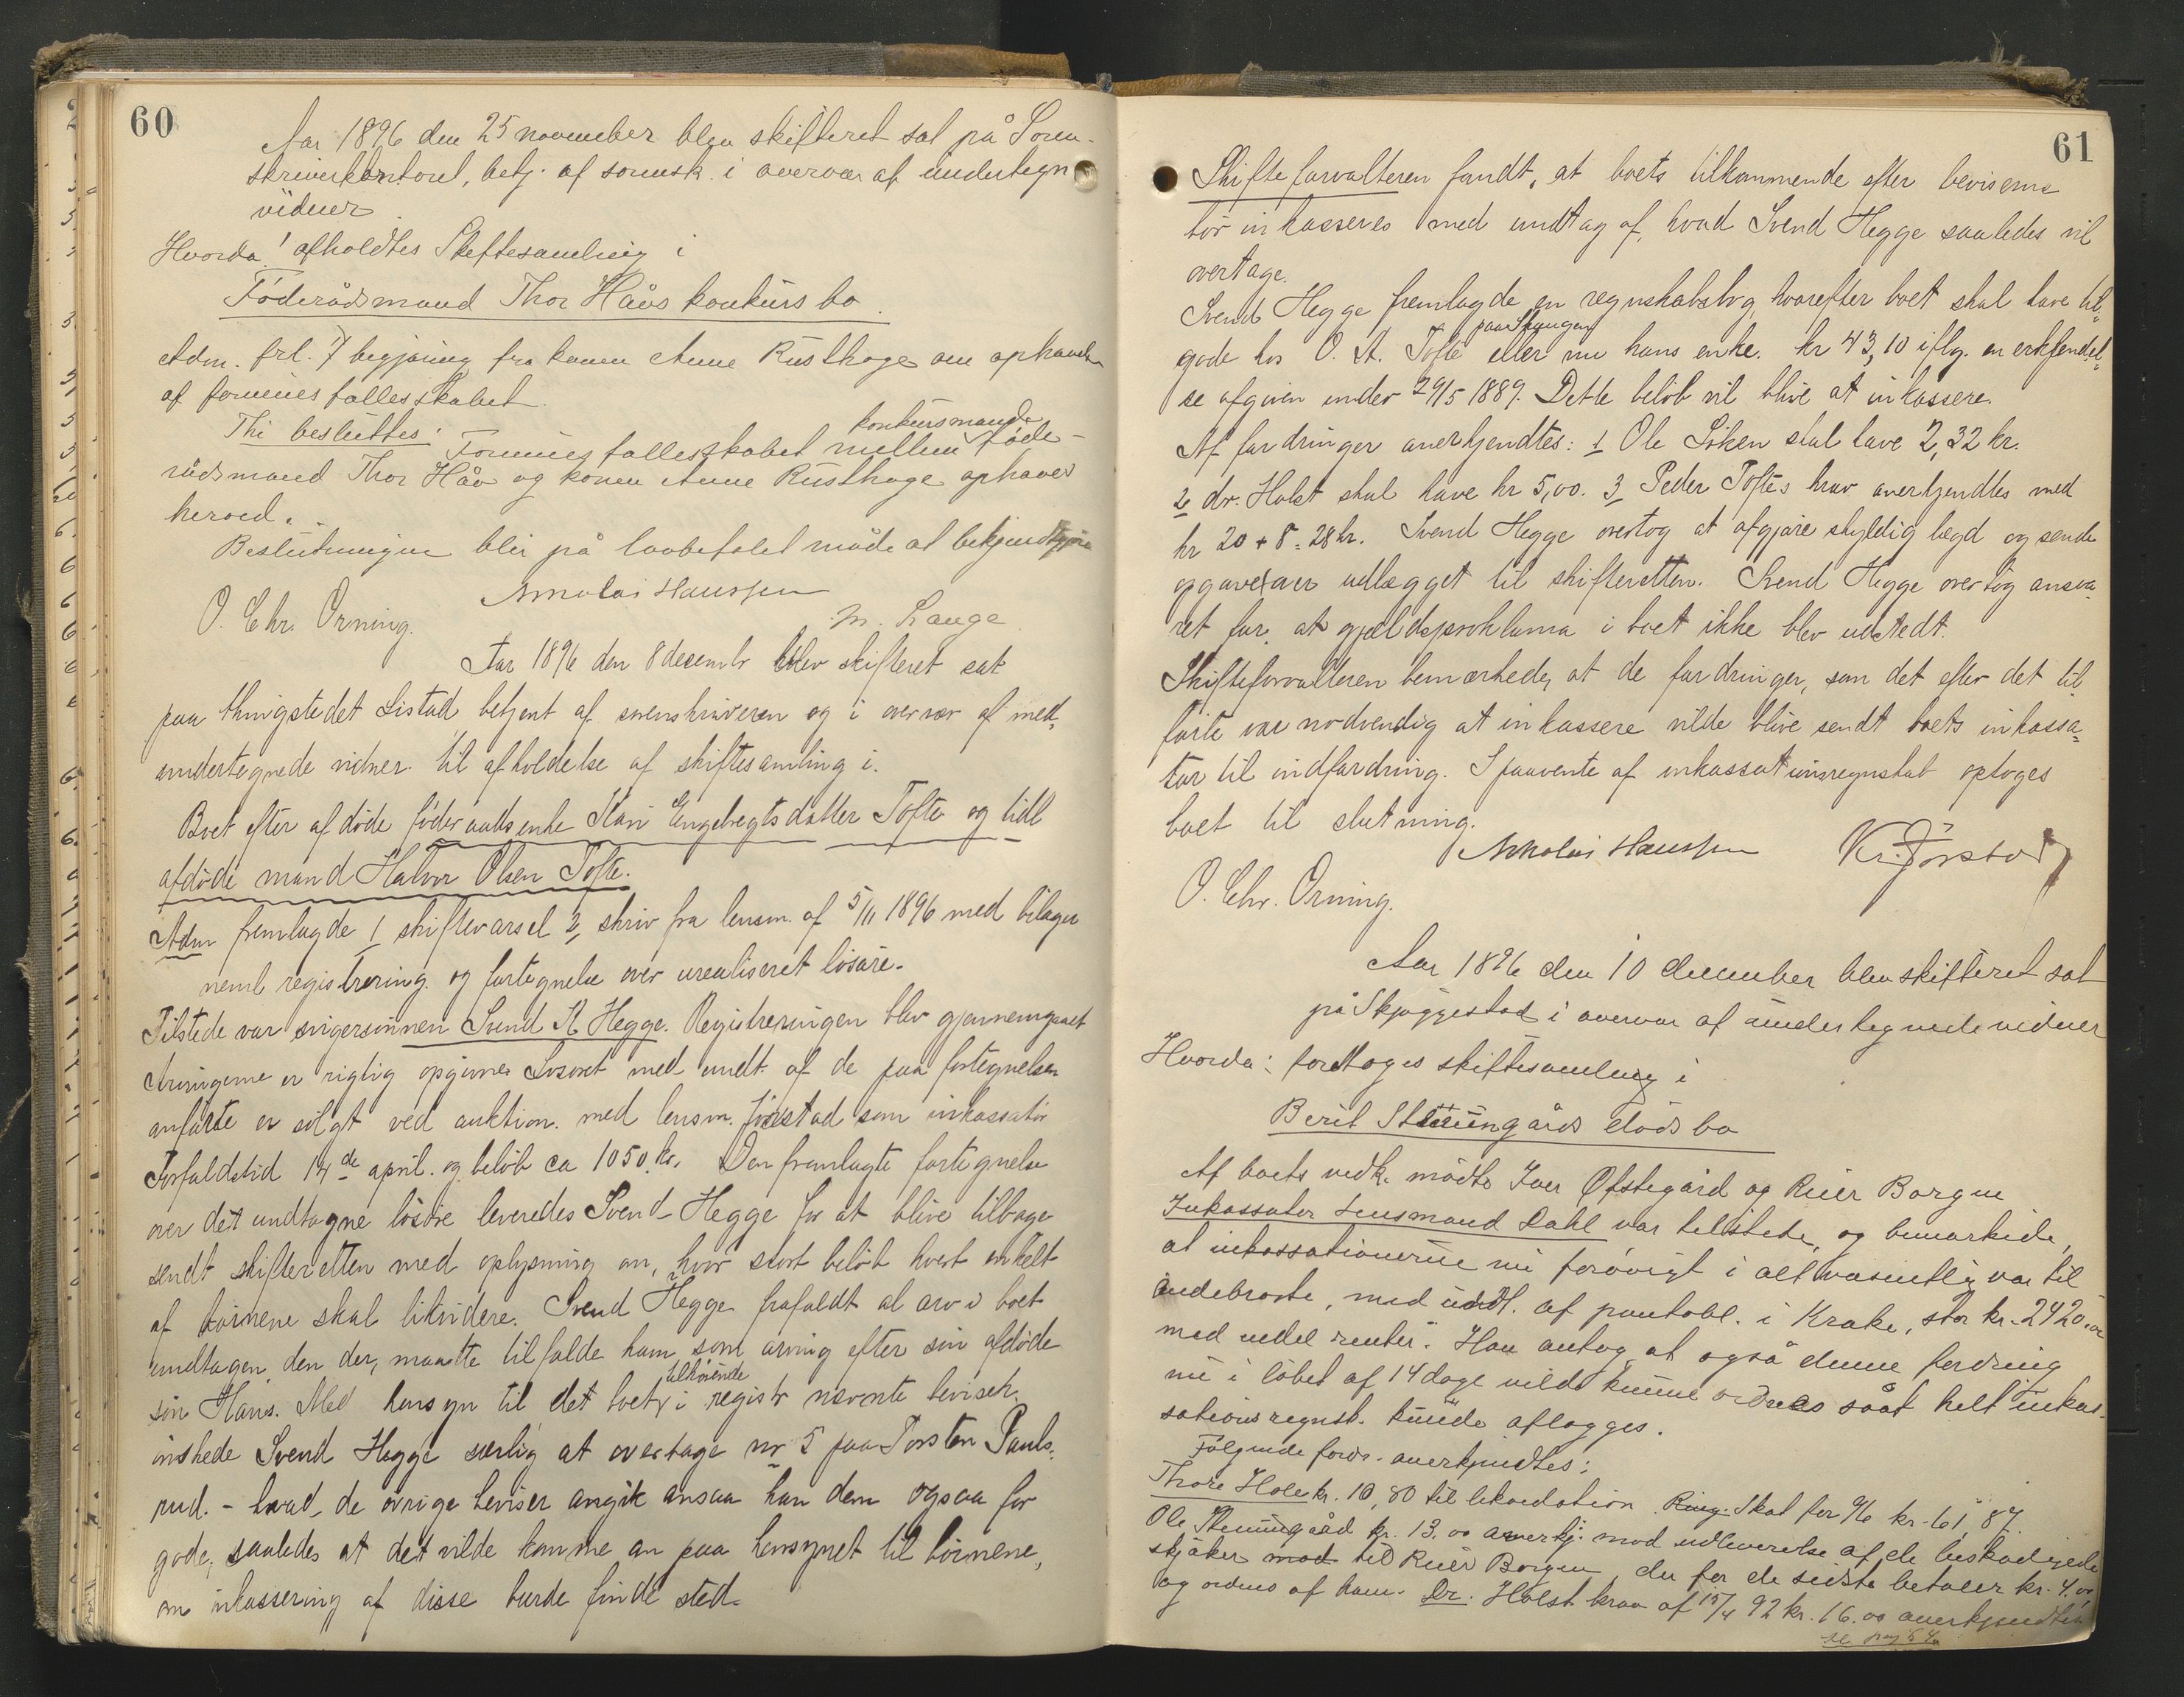 60
Aar 1896 den 25 november blev skifteret sat på Soren-
skriverkontoret, betj. af sorensk. i overvær af undertegn
vidner
Hvorda! afholdtes Skiftesamling i
Föderådsmand Thor Håvs konkurs bo.
Adm. frl. 7 begjæring fra konen Anne Rusthage om ophævelse
af formues fællesskabet.
Thi besluttes:
Formuesfællesskabet mellem konkursmande föde-
rådsmand Thor Håv og konen Anne Rusthage ophæves
herved.
Beslutningen blir på lovbefalet måde at bekjendtgjöre
Nikolai Hanssen
O. Chr. Orning.
M. Lange
Aar 1896 den 8 decembr blev skifteret sat
paa thingstedet Listad betjent af sorenskriveren og i overvær af med-
undertegnede vidner til afholdelse af skiftesamling i.
Boet efter afdöde föderaadsenke Kari Engebregtsdatter Tofte og tidl
afdöde mand Halvor Olsen Tofte.
Adm fremlagde 1 skiftevarsel 2, skriv fra lensm. af 5/11 1896 med bilager
neml registrering og fortegnelse over urealiseret lösöre.
Tilstede var svigersönnen Svend K Hegge. Registreringen blev gjennemgaaet
Arvingerne er rigtig opgivne. Lösöret med undt af de paa fortegnelsen
anförte er solgt ved auktion med lensm. Jörstad som inkassator
Forfaldstid 14de april og belöb ca 1050 kr. Den fremlagte fortegnelse
over det undtagne lösöre leveredes Svend Hegge for at blive tilbage
sendt skifteretten med oplysning om, hvor stort belöb hvert enkelt
af börnene skal likvidere. Svend Hegge frafaldt al arv i boet
undtagen den der, maatte tilfalde ham som arving efter sin afdöde
sön Hans. Med hensyn til det boet tilhörende i registr nævnte bevisek.
önskede Svend Hegge særlig at overtage nr 5 paa Torsten Pauls-
rud. - hvad de övrige beviser angik ansaa han dem ogsaa for
gode, saaledes at det vilde komme an paa hensynet til börnene,
om inkassering af disse burde finde sted.
61
Skifteforvalteren fandt, at boets tilkommende efter beviserne
bör inkasseres med undtag af, hvad Svend Hegge saaledes vil
overtage.
Svend Hegge fremlagde en regnskabsbog, hvorefter boet skal have til-
gode hos O. A. Tofte paa Haugen eller nu hans enke. kr 43,10 iflg. en erkjendel-
se afgiven under 29/5 1889. Dette belöb vil blive at inkassere.
Af fordringer anerkjendtes: 1 Ole Löken skal have 2,32 kr.
2 dr. Holst skal have kr 5,00. 3, Peder Toftes krav anerkjendtes med
kr 20 + 8 = 28 kr. Svend Hegge overtog at afgjöre skyldig lægd og sende
opgave over udlægget til skifteretten. Svend Hegge overtog ansva-
ret for, at gjældsproklama i boet ikke blev udstedt.
Skifteforvalteren bemærkede, at de fordringer, som det efter det til-
förte var nödvendig at inkassere vilde blive sendt boets inkassa-
tor til indfordring. I paavente af inkassationsregnskab optoges
boet til slutning.
Nikolai Hanssen
Kr. Jörstad
O. Chr. Orning.
Aar 1896 den 10 december blev skifteret sat
på Skjæggestad i overvær af undertegnede vidner
Hvorda: foretoges skiftesamling i
Berit Stenungårds dödsbo
Af boets vedk. mödte Iver Øfstegård og Reier Borgen
Inkassator Lensmand Dahl var tilstede, og bemærkede,
at inkassationerne nu forövrigt i alt væsentlig var til
endebragte, med undt. af pantobl. i Kroke, stor kr. 2420.00
med endel renter. Han antog at også denne fordring
nu i löbet af 14 dage vilde kunne ordnes såat helt inkas-
sations regnsk. kunde aflægges.
Fölgende fordr. anerkjendtes:
Thore Hole kr. 10,80 til likvidation. Ring. Skat for 96 kr. 61,87.
Ole Stenungård kr. 13.00 anerkj. mod udleverelse af de beskadigede
skjöker mod til Reier Borgen, der for de sidste betaler kr. 4.00
og ordnes af ham. Dr. Holst krav af 15/4 92 kr. 16.00 anerkjendtes
se pag 54